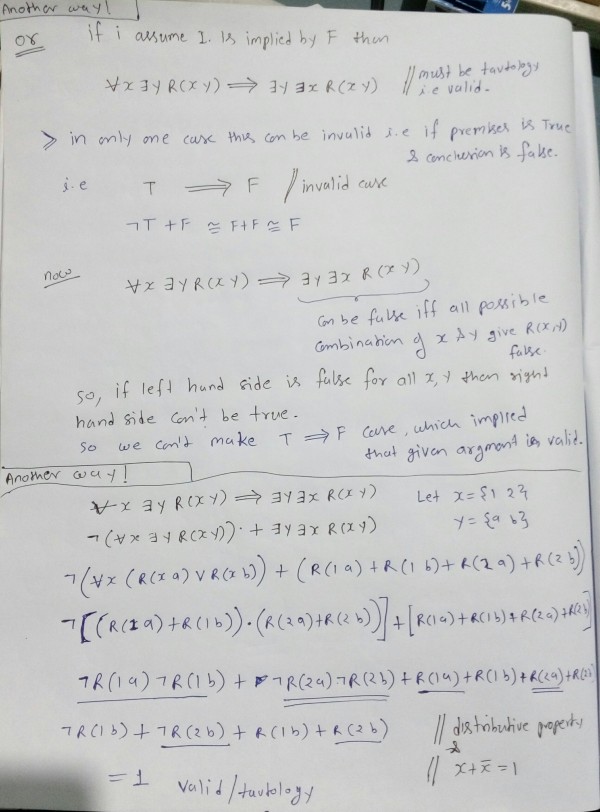 Another way!
or if i assume 1. Is implied by F then
∀x ∃y R(x y) ⟹ ∃y ∃x R(x y) // must be tautology
i.e valid.
> in only one case this can be invalid i.e if premises is True
& conclusion is false.
i.e T ⟹ F // invalid case
¬T + F ≅ F+F ≅ F
now ∀x ∃y R(x y) ⟹ ∃y ∃x R(x y)
can be false iff all possible
combination of x & y give R(x,y)
false.
so, if left hand side is false for all x, y then right
hand side can't be true.
so we can't make T ⟹ F case, which implied
that given argment is valid.
Another way!
∀x ∃y R(x y) ⟹ ∃y ∃x R(x y) Let x = {1 2}
¬(∀x ∃y R(x y)) + ∃y ∃x R(x y) y = {a b}
¬(∀x (R(x a) ∨ R(x b)) + (R(1 a) + R(1 b) + R(2 a) + R(2 b))
¬[(R(1 a) + R(1 b)) · (R(2 a) + R(2 b))] + [R(1 a) + R(1 b) + R(2 a) + R(2 b)]
¬R(1 a) ¬R(1 b) + ¬R(2 a) ¬R(2 b) + R(1 a) + R(1 b) + R(2 a) + R(2 b)
¬R(1 b) + ¬R(2 b) + R(1 b) + R(2 b) // distributive property
&
= 1 valid/tautology // x + x̄ = 1